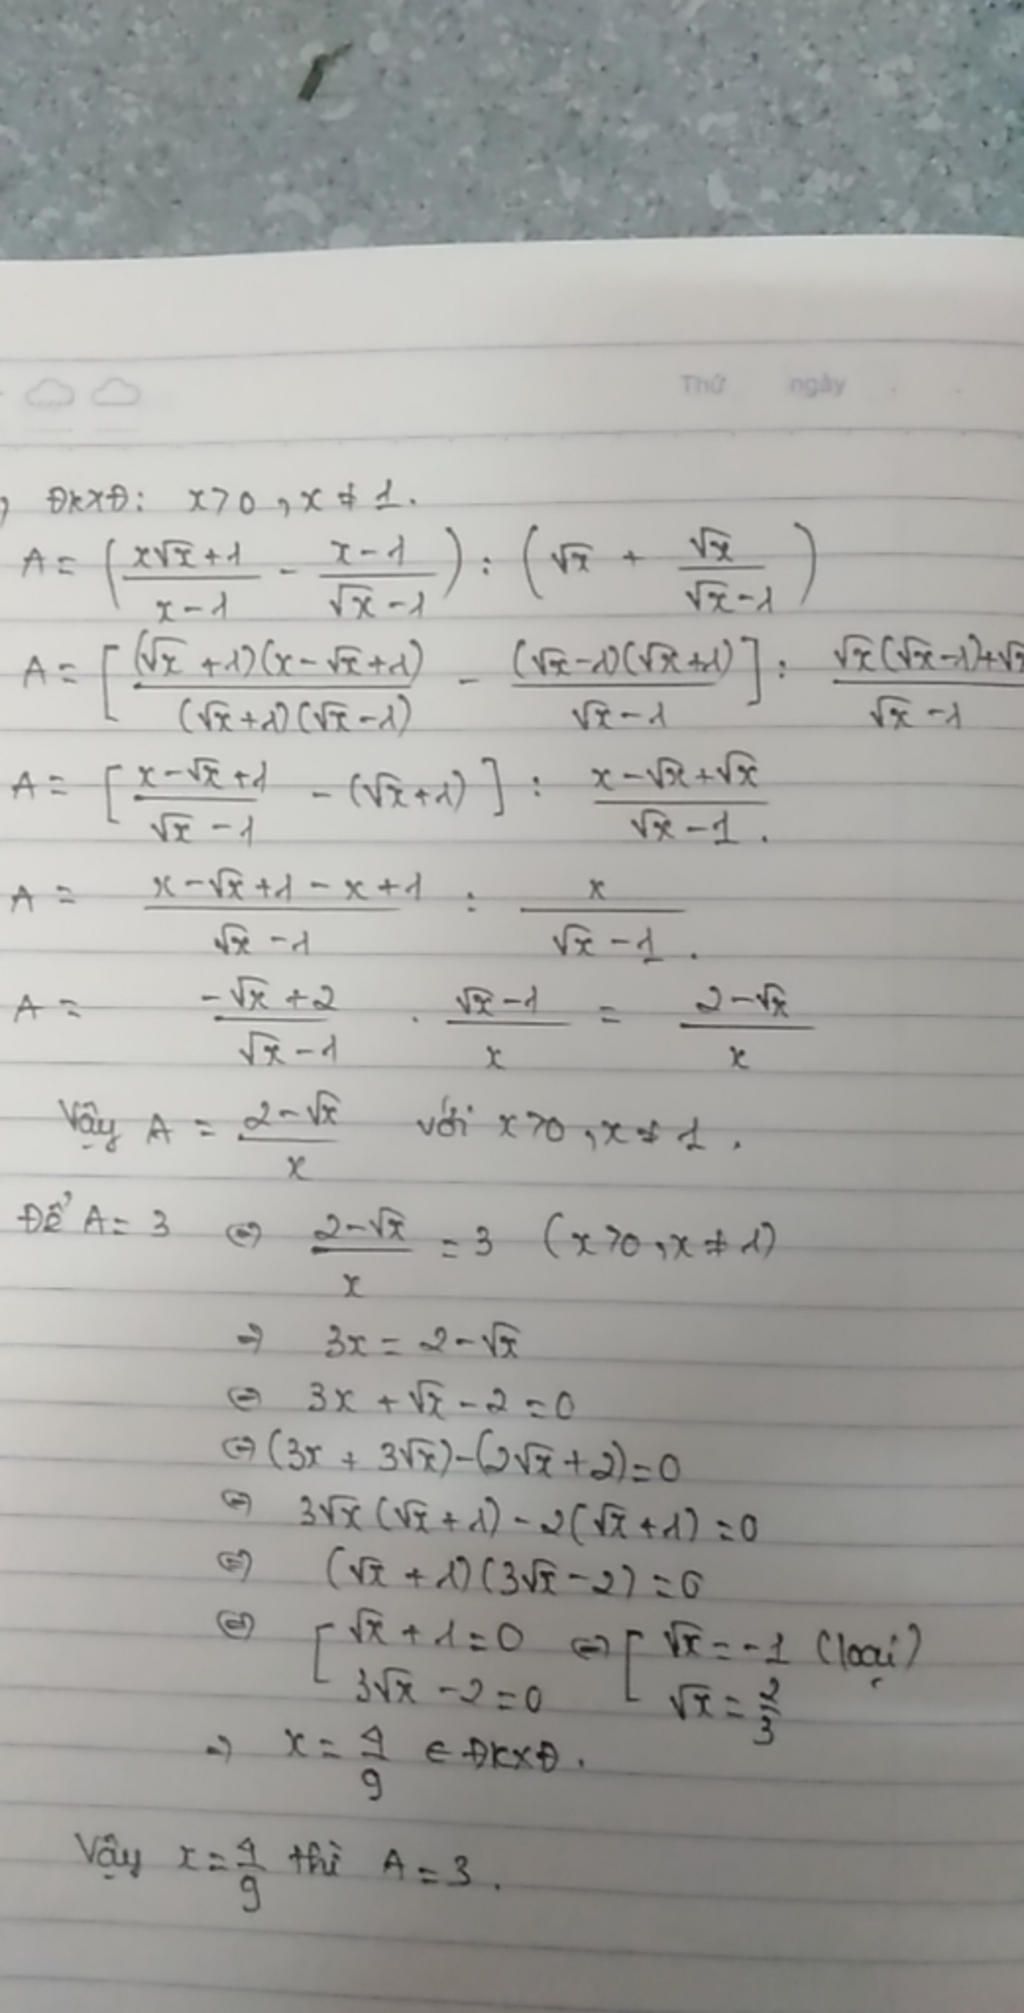 Thứ ngày
ĐKXĐ: x>0, x≠1.
A = (x√x+1/x-1 - x-1/√x-1) : (√x + √x/√x-1)
A = [(√x+1)(x-√x+1)/(√x+1)(√x-1) - (√x-1)(√x+1)/√x-1] : √x(√x-1)+√x/√x-1
A = [x-√x+1/√x-1 - (√x+1)] : x-√x+√x/√x-1.
A = x-√x+1-x+1/√x-1 : x/√x-1.
A = -√x+2/√x-1 . √x-1/x = 2-√x/x
Vậy A = 2-√x/x với x>0, x≠1.
Để A=3 ⇔ 2-√x/x = 3 (x>0, x≠1)
⇒ 3x = 2-√x
⇔ 3x + √x - 2 = 0
⇔ (3x + 3√x)-(2√x+2)=0
⇔ 3√x(√x+1) - 2(√x+1) = 0
⇔ (√x+1)(3√x-2) = 0
⇔ [√x+1=0 ⇔ [√x=-1 (loại)
3√x-2=0 √x=2/3
⇒ x=4/9 ∈ ĐKXĐ.
Vậy x=4/9 thì A=3.